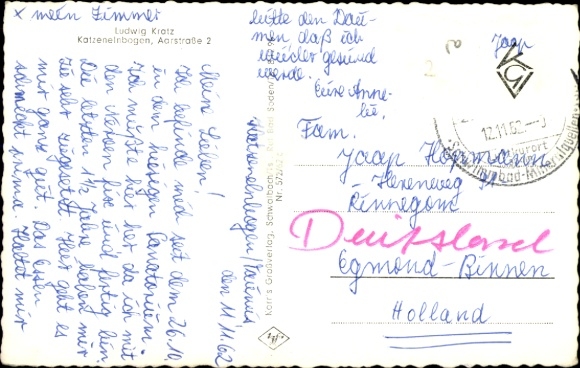 x mein Zimmer
Ludwig Kratz
Katzenelnbogen, Aarstraße 2
Katzenelnbogen/Taunus,
den 11.11.62
Meine Lieben!
Ich befinde mich seit dem 26.10.
in dem hiesigen Sanatorium.
Ich mußte hier her da ich mit
den Nerven hin und fertig bin.
Die letzten 1½ Jahre haben mir
zu sehr zugesetzt. Hier geht es
mir ganz gut. Das Essen
schmeckt prima. Haltet mir
bitte den Dau-
men daß ich
wieder gesund
werde.
Eure Anne-
lie.
Karl's Großverlag, Schwalbach
Bad Soden
Nr. 5/
Jaap
12.11.62
Fam.
Jaap Hopmann
Hexenweg
Rinnegom
Deutschland
Egmond-Binnen
Holland